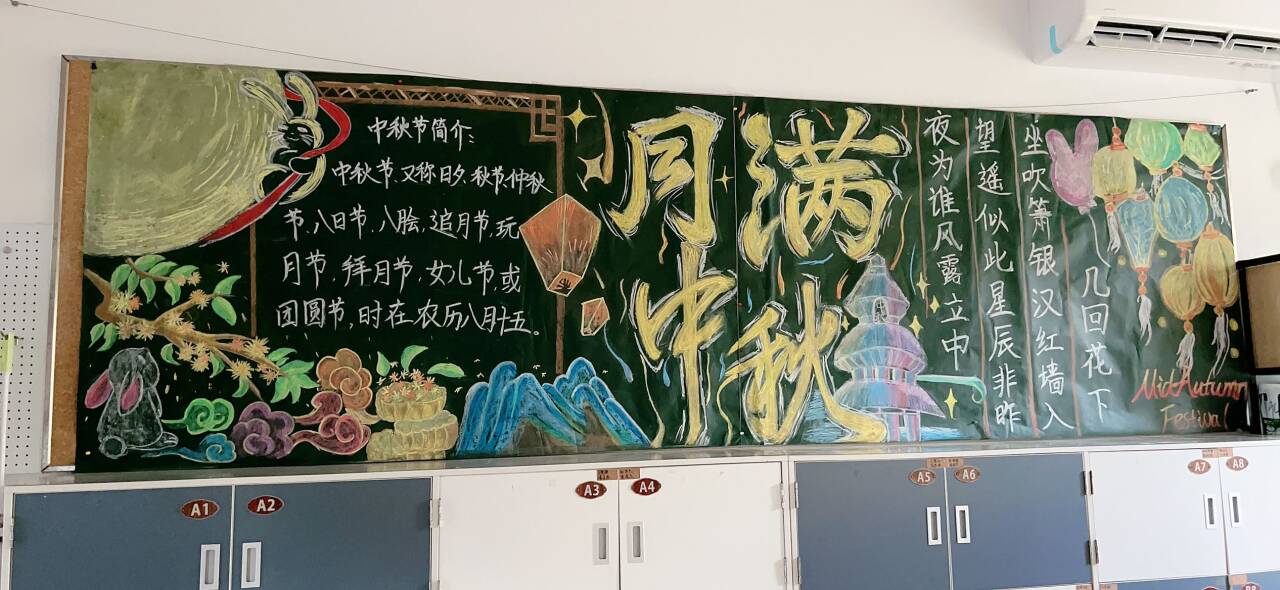 中秋节简介:
中秋节、又称日夕、秋节、仲秋
节、八日节、八脍、追月节、玩
月节、拜月节、女儿节、或
团圆节,时在农历八月十五。
月满
中秋
几回花下
坐吹箫银汉红墙入
望遥似此星辰非昨
夜为谁风露立中
Mid Autumn
Festival
A1
A2
A3
A4
A5
A6
A7
A8